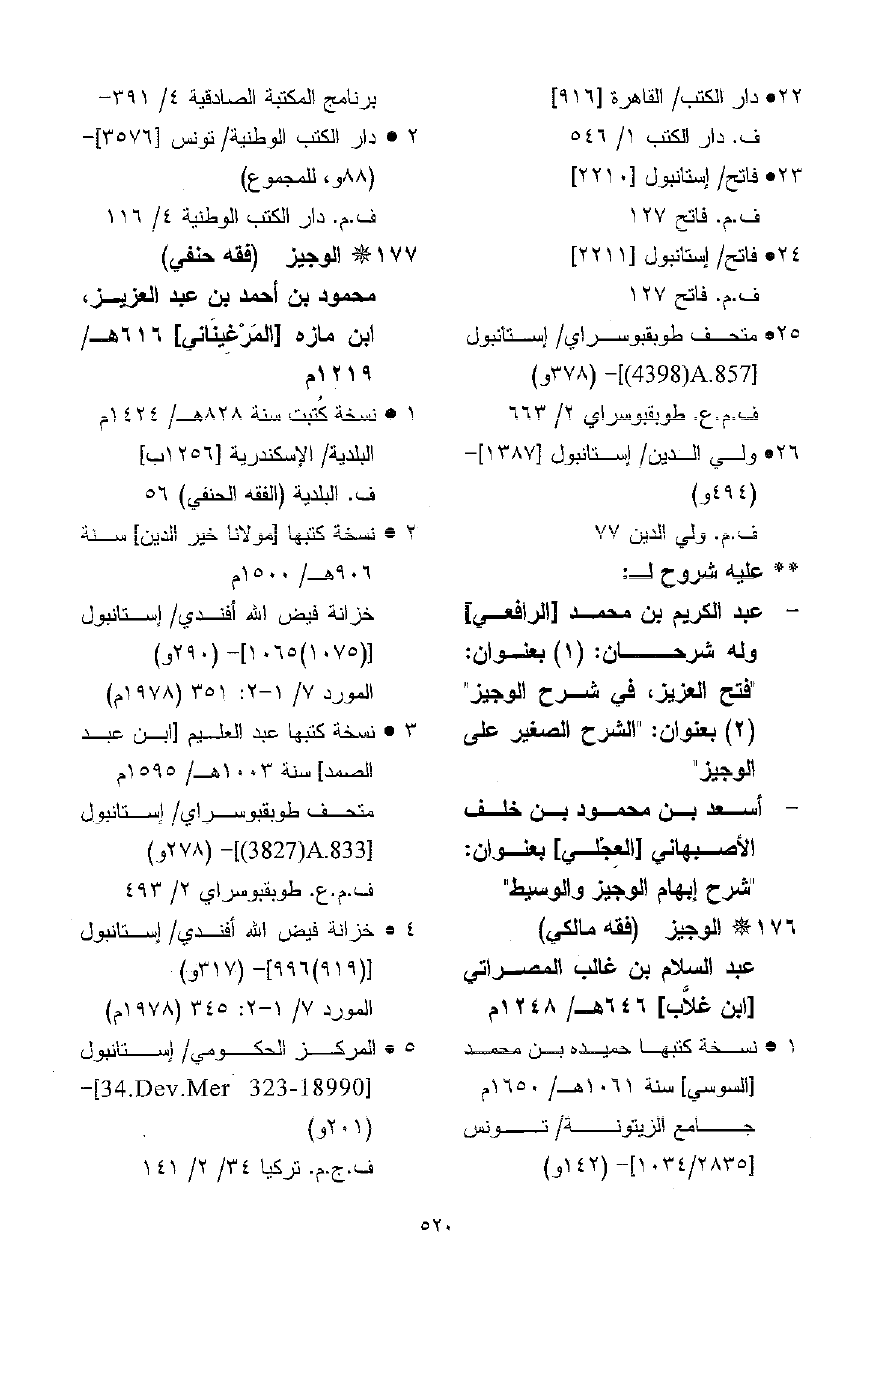 ٢٢• دار الكتب/ القاهرة [٩١٦]
ف. دار الكتب ١/ ٥٤٦
٢٣• فاتح/ إستانبول [٢٢١٠]
ف.م. فاتح ١٢٧
٢٤• فاتح/ إستانبول [٢٢١١]
ف.م. فاتح ١٢٧
٢٥• متحف طوبقبوسراي/ إستانبول
[A.857(4398)]- (٣٧٨و)
ف.م.ع. طوبقبوسراي ٢/ ٦٦٣
٢٦• ولي الدين/ إستانبول [١٣٨٧]-
(٤٩٤و)
ف.م. ولي الدين ٧٧
** عليه شروح لـ:
- عبد الكريم بن محمد [الرافعي]
وله شرحان: (١) بعنوان:
"فتح العزيز، في شرح الوجيز"
(٢) بعنوان: "الشرح الصغير على
الوجيز"
- أسعد بن محمود بن خلف
الأصبهاني [العِجْلي] بعنوان:
"شرح إبهام الوجيز والوسيط"
١٧٦※ الوجيز (فقه مالكي)
عبد السلام بن غالب المصراتي
[ابن غلاَّب] ٦٤٦هـ/ ١٢٤٨م
١ • نسخة كتبها حميده بن محمد
[السوسي] سنة ١٠٦١هـ/ ١٦٥٠م
جامع الزيتونة/ تونس
[١٠٣٤/٢٨٣٥]- (١٤٢و)
برنامج المكتبة الصادقية ٤/ ٣٩١-
٢ • دار الكتب الوطنية/ تونس [٣٥٧٦]-
(٨٨و، للمجموع)
ف.م. دار الكتب الوطنية ٤/ ١١٦
١٧٧※ الوجيز (فقه حنفي)
محمود بن أحمد بن عبد العزيز،
ابن مازه [المَرْغِينَاني] ٦١٦هـ/
١٢١٩م
١ • نسخة كُتبت سنة ٨٢٨هـ/ ١٤٢٤م
البلدية/ الإسكندرية [١٢٥٦ب]
ف. البلدية (الفقه الحنفي) ٥٦
٢ • نسخة كتبها [مولانا خير الدين] سنة
٩٠٦هـ/ ١٥٠٠م
خزانة فيض الله أفندي/ إستانبول
[١٠٦٥(١٠٧٥)]- (٢٩٠و)
المورد ٧/ ١-٢: ٣٥١ (١٩٧٨م)
٣ • نسخة كتبها عبد العليم [ابن عبد
الصمد] سنة ١٠٠٣هـ/ ١٥٩٥م
متحف طوبقبوسراي/ إستانبول
[A.833(3827)]- (٢٧٨و)
ف.م.ع. طوبقبوسراي ٢/ ٤٩٣
٤ • خزانة فيض الله أفندي/ إستانبول
[٩٩٦(٩١٩)]- (٣١٧و)
المورد ٧/ ١-٢: ٣٤٥ (١٩٧٨م)
٥ • المركز الحكومي/ إستانبول
[34.Dev.Mer 323-18990]-
(٢٠١و)
ف.ج.م. تركيا ٣٤/ ٢/ ١٤١
٥٢٠